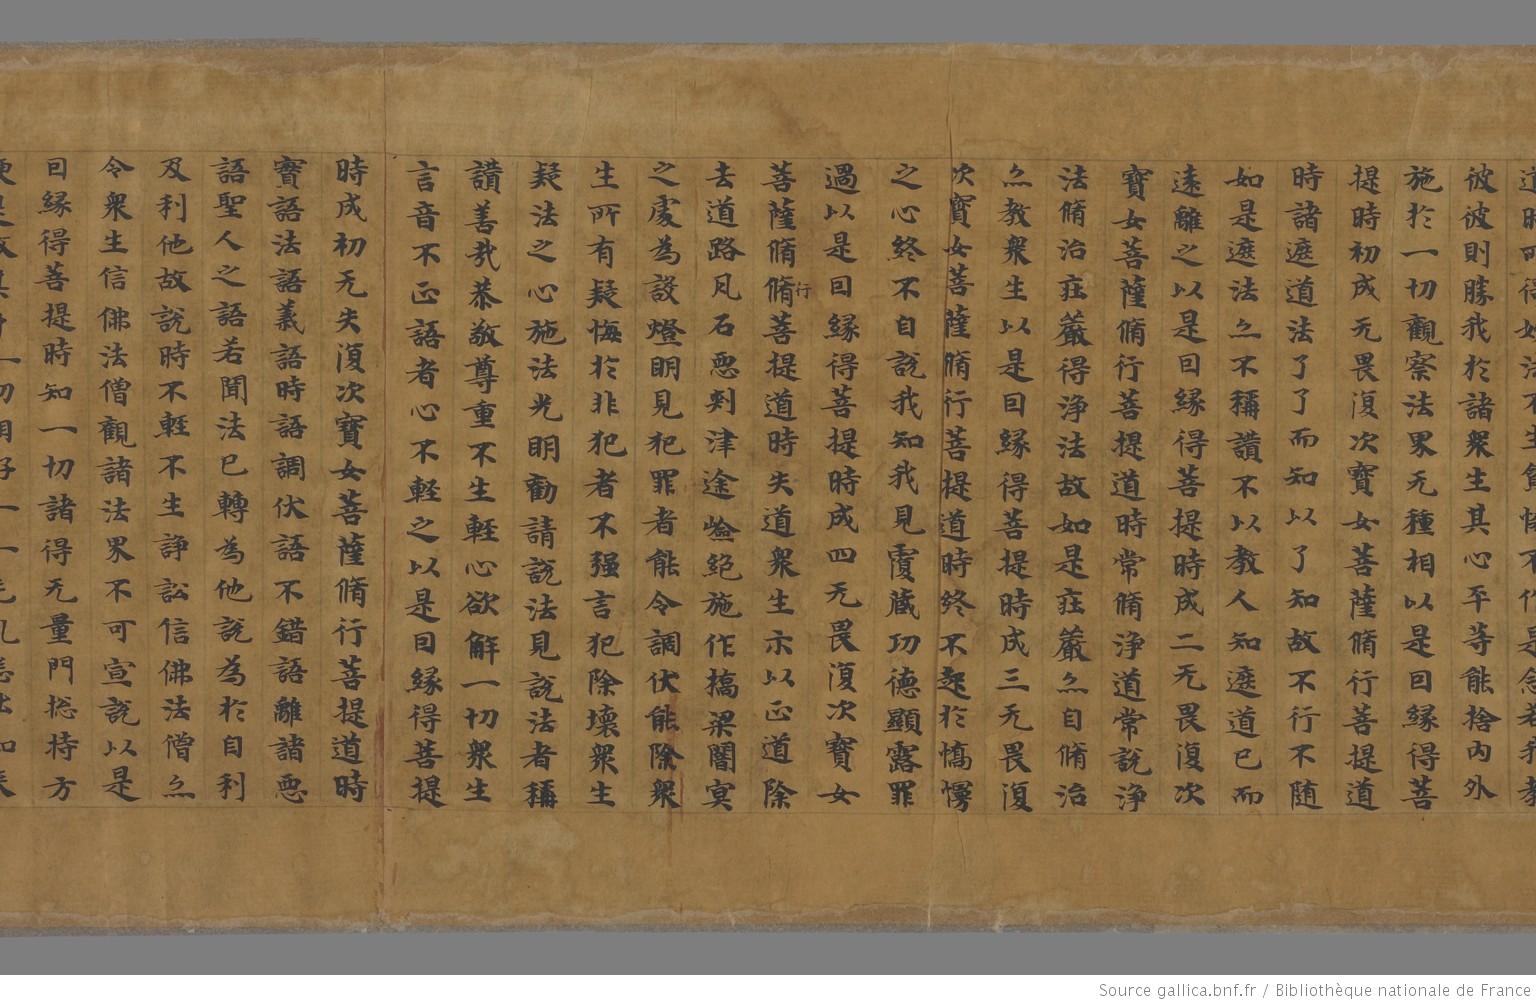 彼彼則勝我於諸衆生其心平等能捨內外
施於一切觀察法界无種相以是曰縁得菩
提時初成无畏復次寶女菩薩脩行菩提道
時諸遮道法了了而知以了知故不行不随
如是遮法亦不稱讚不以教人知遮道已而
遠離之以是曰縁得菩提時成二无畏復次
寶女菩薩脩行菩提道時常脩浄道常說浄
法脩治莊嚴得浄法故如是莊嚴亦自脩治
亦教衆生以是曰縁得菩提時成三无畏復
次寶女菩薩脩行菩提道時終不起於憍慢
之心終不自說我知我見覆蔵功德顯露罪
過以是曰縁得菩提時成四无畏復次寶女
菩薩脩脩行菩提道時失道衆生示以正道除
去道路凡石惡刺津途嶮絕施作撟梁闇㝠
之處為設燈明見犯罪者能令調伏能除衆
生所有疑悔於非犯者不强言犯除壞衆生
疑法之心施法光明勸請說法見說法者稱
讚善哉恭敬尊重不生輕心欲解一切衆生
言音不正語者心不輕之以是曰縁得菩提
時成初无失復次寶女菩薩脩行菩提道時
實語法語義語時語調伏語不錯語離諸惡
語聖人之語若聞法已轉為他說為於自利
及利他故說時不輕不生諍訟信佛法僧亦
令衆生信佛法僧觀諸法界不可宣說以是
曰縁得菩提時知一切諸得无量門捴持方